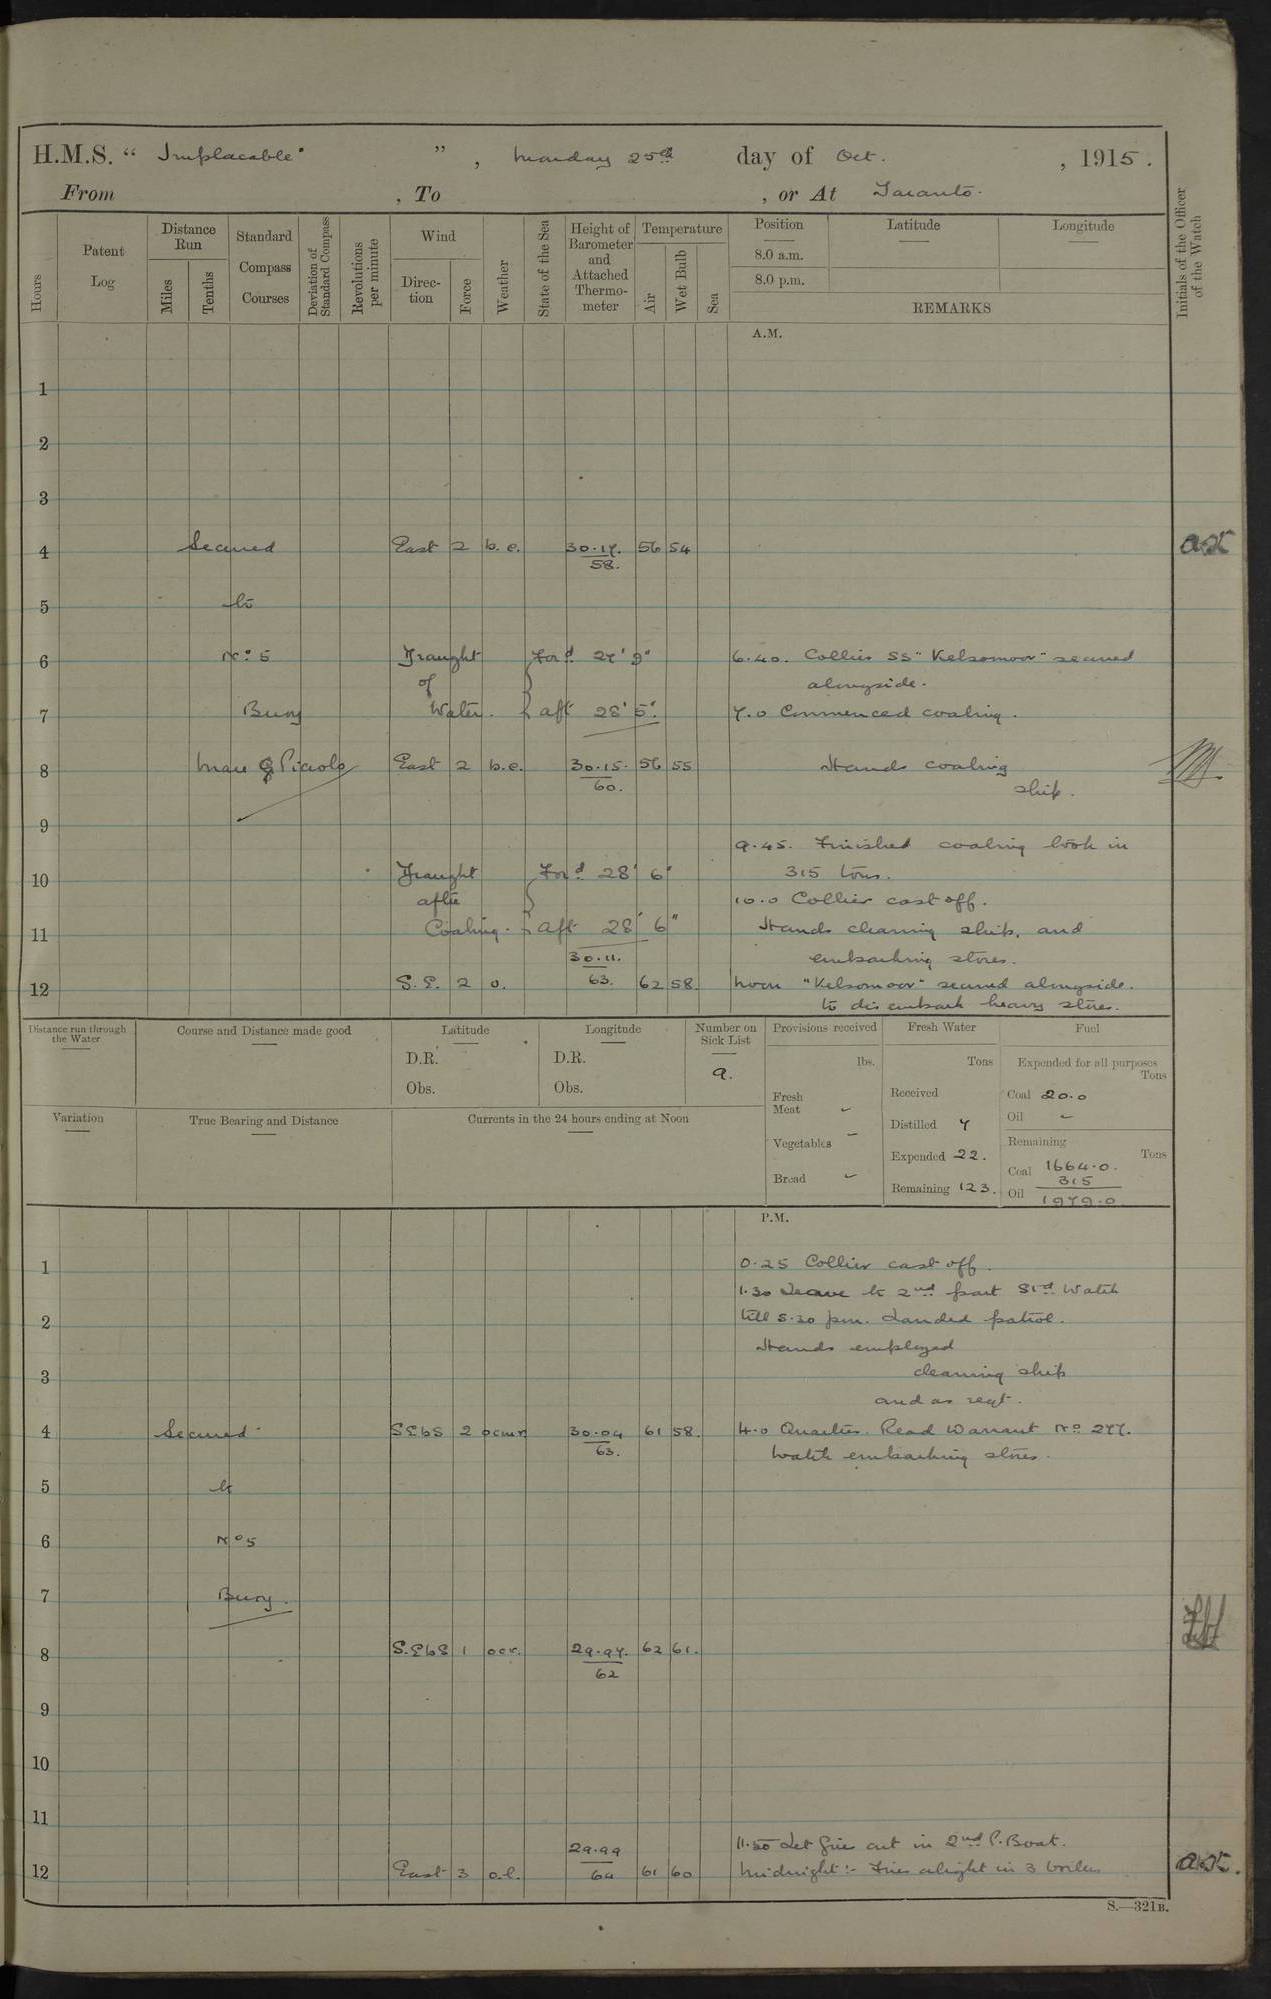 H.M.S. " Implacable " , Monday 25th day of Oct. , 1915.
From , To , or At Taranto.
Hours
Patent Log
Distance Run
Miles
Tenths
Standard Compass Courses
Deviation of Standard Compass
Revolutions per minute
Wind
Direction
Force
Weather
State of the Sea
Height of Barometer and Attached Thermometer
Temperature
Air
Wet Bulb
Sea
Position
8.0 a.m.
8.0 p.m.
Latitude
Longitude
REMARKS
Initials of the Officer of the Watch
A.M.
1
2
3
4 Secured East 2 b.c. 30.17. 56 54
58.
5 to
6 No 5 Draught For'd 27' 9" 6.40. Collier SS "Kelsomoor" secured
of alongside.
7 Buoy Water. aft 28' 5". 7.0 Commenced coaling.
8 Mare Piccolo East 2 b.c. 30.15. 56 55 Hands coaling
60. ship.
9
9.45. Finished coaling took in
10 Draught For'd 28' 6" 315 tons.
after 10.0 Collier cast off.
11 Coaling. aft 28' 6" Hands cleaning ship, and
30.11. embarking stores.
12 S.E. 2 o. 63. 62 58. Noon "Kelsomoor" secured alongside.
to disembark heavy stores.
Distance run through the Water
Course and Distance made good
Latitude
D.R.
Obs.
Longitude
D.R.
Obs.
Number on Sick List
9.
Variation
True Bearing and Distance
Currents in the 24 hours ending at Noon
Provisions received
lbs.
Fresh Meat -
Vegetables -
Bread -
Fresh Water
Tons
Received
Distilled 7
Expended 22.
Remaining 123.
Fuel
Expended for all purposes
Tons
Coal 20.0
Oil -
Remaining
Tons
Coal 1664.0.
315
Oil 1979.0.
P.M.
1 0.25 Collier cast off.
1.30 Leave to 2nd part Stbd Watch
2 till 5.30 pm. Landed patrol.
Hands employed
3 cleaning ship
and as reqt.
4 Secured SEbS 2 ocmr 30.04 61 58. 4.0 Quarters. Read Warrant No 277.
63. Watch embarking stores.
5 to
6 No 5
7 Buoy.
8 S.EbS 1 ocr. 29.97. 62 61.
62
9
10
11
29.99 11.50 Let fires out in 2nd P. Boat.
12 East 3 o.l. 64 61 60 Midnight :- Fires alight in 3 boilers
S.—321B.